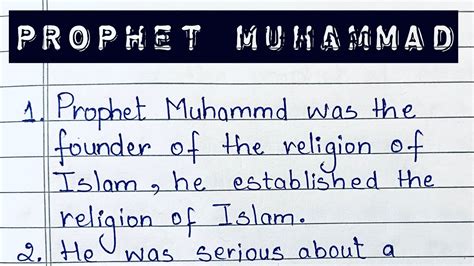 PROPHET MUHAMMAD
1. Prophet Muhammd was the
founder of the religion of
Islam, he established the
religion of Islam.
2. He was serious about a